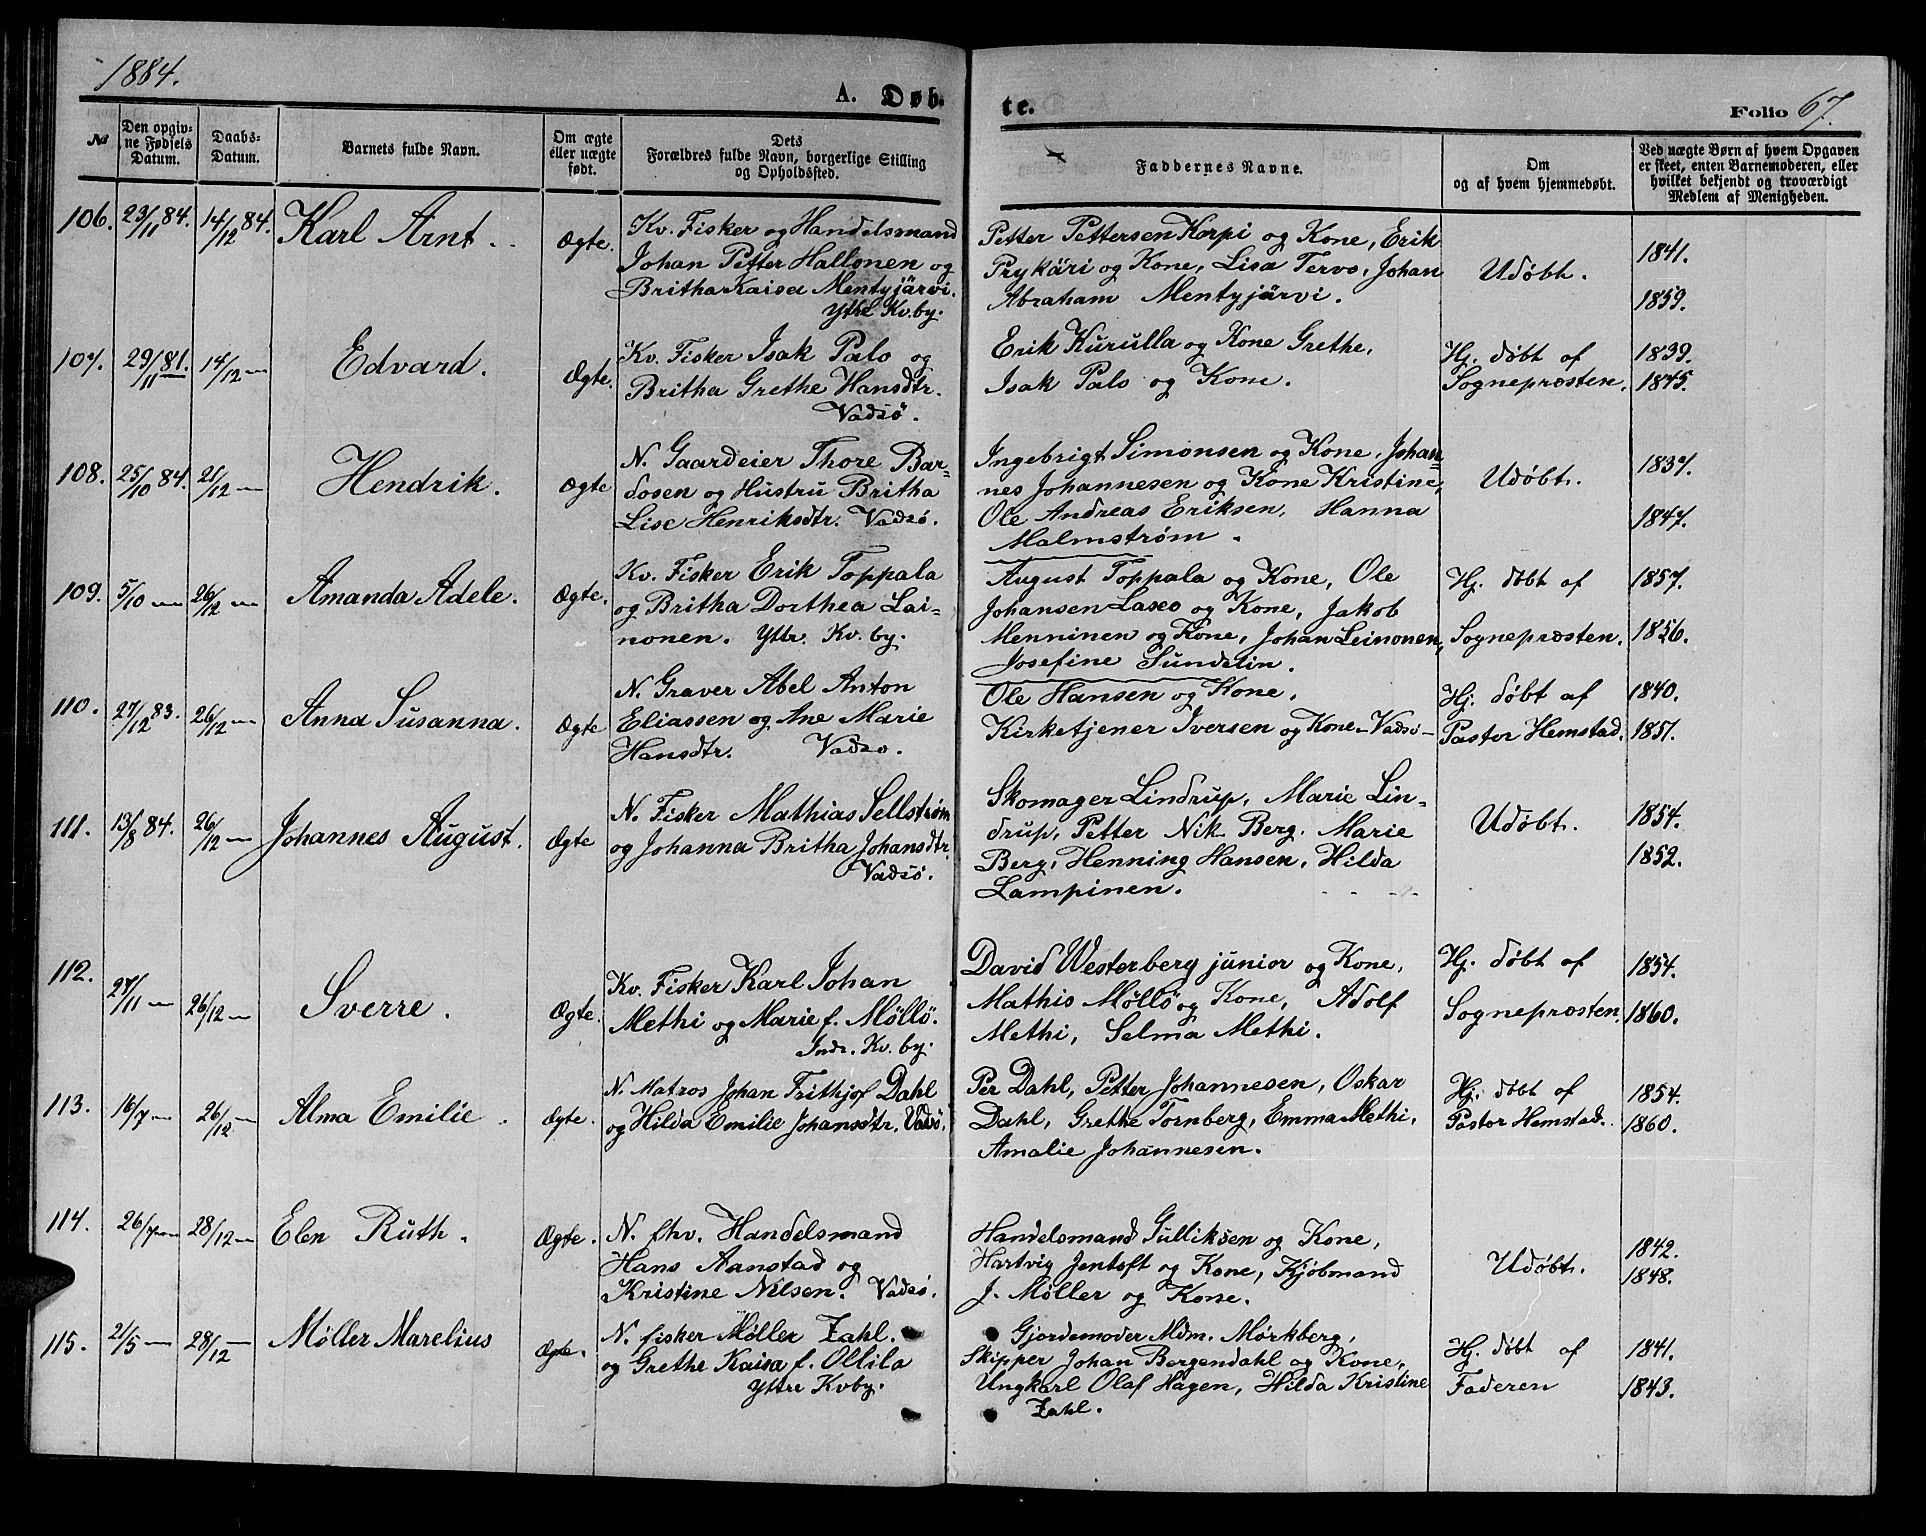 1884.
A. Døb-
te.
Folio 67.
№
Den opgiv-
ne Fødsels
Datum.
Daabs-
Datum.
Barnets fulde Navn.
Om ægte
eller uægte
født.
Dets
Forældres fulde Navn, borgerlige Stilling
og Opholdsted.
Faddernes Navne.
Om
og af hvem hjemmedøbt.
Ved uægte Børn af hvem Opgaven
er skeet, enten Barnemoderen, eller
hvilket bekjendt og troværdigt
Medlem af Menigheden.
106. 23/11 84. 14/12 84. Karl Arnt. Ægte.
Kv. Fisker og Handelsmand
Johan Petter Hallonen og
Britha Kaisa Mentyjärvi.
Ytre Kv.by.
Petter Pettersen Korpi og Kone, Erik
Prykäri og Kone, Lisa Tervo, Johan
Abraham Mentyjärvi.
Udøbt.
1841.
1859.
107. 29/11 81. 14/12 — Edvard. Ægte.
Kv. Fisker Isak Palo og
Britha Grethe Hansdtr.
Vadsö.
Erik Kurulla og Kone Grethe,
Isak Palo og Kone.
Hj. døbt af
Sognepræsten.
1839.
1845.
108. 25/10 84. 21/12 — Hendrik. Ægte
N. Gaardeier Thore Bar-
dosen og Hustru Britha
Lise Henriksdtr. Vadsö.
Ingebrigt Simonsen og Kone, Johan-
nes Johannesen og Kone Kristine,
Ole Andreas Eriksen, Hanna
Malmstrøm.
Udøbt.
1837.
1847.
109. 5/10 — 26/12 — Amanda Adele. Ægte.
Kv. Fisker Erik Toppala
og Britha Dorthea Lai-
nonen. Yttr. Kv. by.
August Toppala og Kone, Ole
Johansen Laseo og Kone, Jakob
Menninen og Kone, Johan Leinonen,
Josefine Sundelin.
Hj. døbt af
Sognepræsten.
1857.
1856.
110. 27/12 83. 26/12 — Anna Susanna. Ægte
N. Graver Abel Anton
Eliassen og Ane Marie
Hansdtr. Vadsø.
Ole Hansen og Kone.
Kirketjener Iversen og Kone — Vadsø —
Hj. døbt af
Pastor Hemstad.
1840.
1851.
111. 13/8 84. 26/12 — Johannes August. Ægte
N. Fisker Mathias Sellstrøm
og Johanna Britha Johansdtr.
Vadsö.
Skomager Lindrup, Marie Lin-
drup, Petter Nik. Berg. Marie
Berg, Henning Hansen, Hilda
Lampinen.
Udøbt.
1854.
1852.
112. 27/11 — 26/12 — Sverre. Ægte.
Kv. Fisker Karl Johan
Methi og Marie f. Møllö.
Indr. Kv. by.
David Westerberg junior og Kone,
Mathis Møllö og Kone, Adolf
Methi, Selma Methi.
Hj. døbt af
Sognepræsten.
1854.
1860.
113. 16/7 — 26/12 — Alma Emilie. Ægte.
N. Matros Johan Frithjof Dahl
og Hilda Emilie Johansdtr. Vadsö.
Per Dahl, Petter Johannesen, Oskar
Dahl, Grethe Tornberg, Emma Methi,
Amalie Johannesen.
Hj. døbt af
Pastor Hemstad.
1854.
1860.
114. 26/7 — 28/12 — Elen Ruth. Ægte.
N. fhv. Handelsmand
Hans Aanstad og
Kristine Nilsen. Vadsö.
Handelsmand Gulliksen og Kone,
Hartvig Jentoft og Kone, Kjöbmand
J. Møller og Kone.
Udøbt.
1842.
1848.
115. 21/5 — 28/12 — Møller Marelius Ægte.
N. fisker Møller Zahl.
og Grethe Kaisa f. Ollila
Yttre Kvby.
Gjordemoder Mdm. Mørkberg,
Skipper Johan Bergendahl og Kone,
Ungkarl Olaf Hagen, Hilda Kristine
Zahl.
Hj. døbt af
Faderen
1841.
1843.